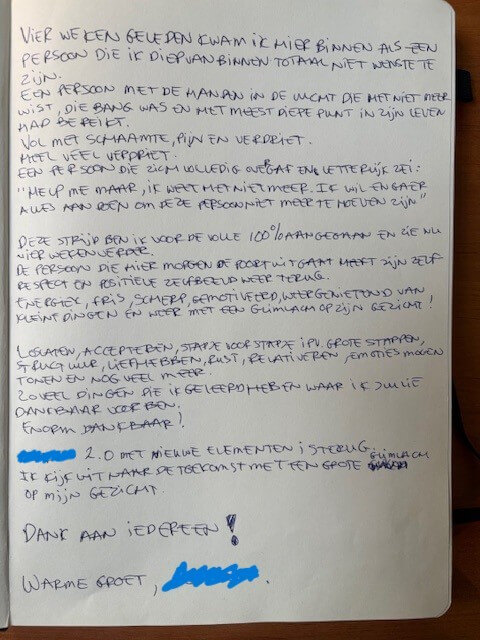 VIER WEKEN GELEDEN KWAM IK HIER BINNEN ALS EEN
PERSOON DIE IK DIEP VAN BINNEN TOTAAL NIET WENSTE TE
ZIJN.
EEN PERSOON MET DE HANDEN IN DE LUCHT DIE HET NIET MEER
WIST, DIE BANG WAS EN HET MEEST DIEPE PUNT IN ZIJN LEVEN
HAD BEREIKT.
VOL MET SCHAAMTE, PIJN EN VERDRIET.
HEEL VEEL VERDRIET.
EEN PERSOON DIE ZICH VOLLEDIG OVERGAF EN LETTERLIJK ZEI:
"HELP ME MAAR, IK WEET HET NIET MEER. IK WIL EN GA ER
ALLES AAN DOEN OM DEZE PERSOON NIET MEER TE HOEVEN ZIJN"
DEZE STRIJD BEN IK VOOR DE VOLLE 100% AANGEGAAN EN ZIE NU
VIER WEKEN VERDER.
DE PERSOON DIE HIER MORGEN DE POORT UIT GAAT HEEFT ZIJN ZELF
RESPECT EN POSITIEVE ZELFBEELD WEER TERUG.
ENERGIEK, FRIS, SCHERP, GEMOTIVEERD, WEER GENIETEND VAN
KLEINE DINGEN EN WEER MET EEN GLIMLACH OP ZIJN GEZICHT!
LOSLATEN, ACCEPTEREN, STAPJE VOOR STAPJE I.P.V. GROTE STAPPEN,
STRUCTUUR, LIEFHEBBEN, RUST, RELATIVEREN, EMOTIES MOGEN
TONEN EN NOG VEEL MEER.
ZOVEEL DINGEN DIE IK GELEERD HEB EN WAAR IK JULLIE
DANKBAAR VOOR BEN.
ENORM DANKBAAR!
2.0 MET NIEUWE ELEMENTEN IS TERUG.
IK KIJK UIT NAAR DE TOEKOMST MET EEN GROTE GLIMLACH
OP MIJN GEZICHT.
DANK AAN IEDEREEN!
WARME GROET,